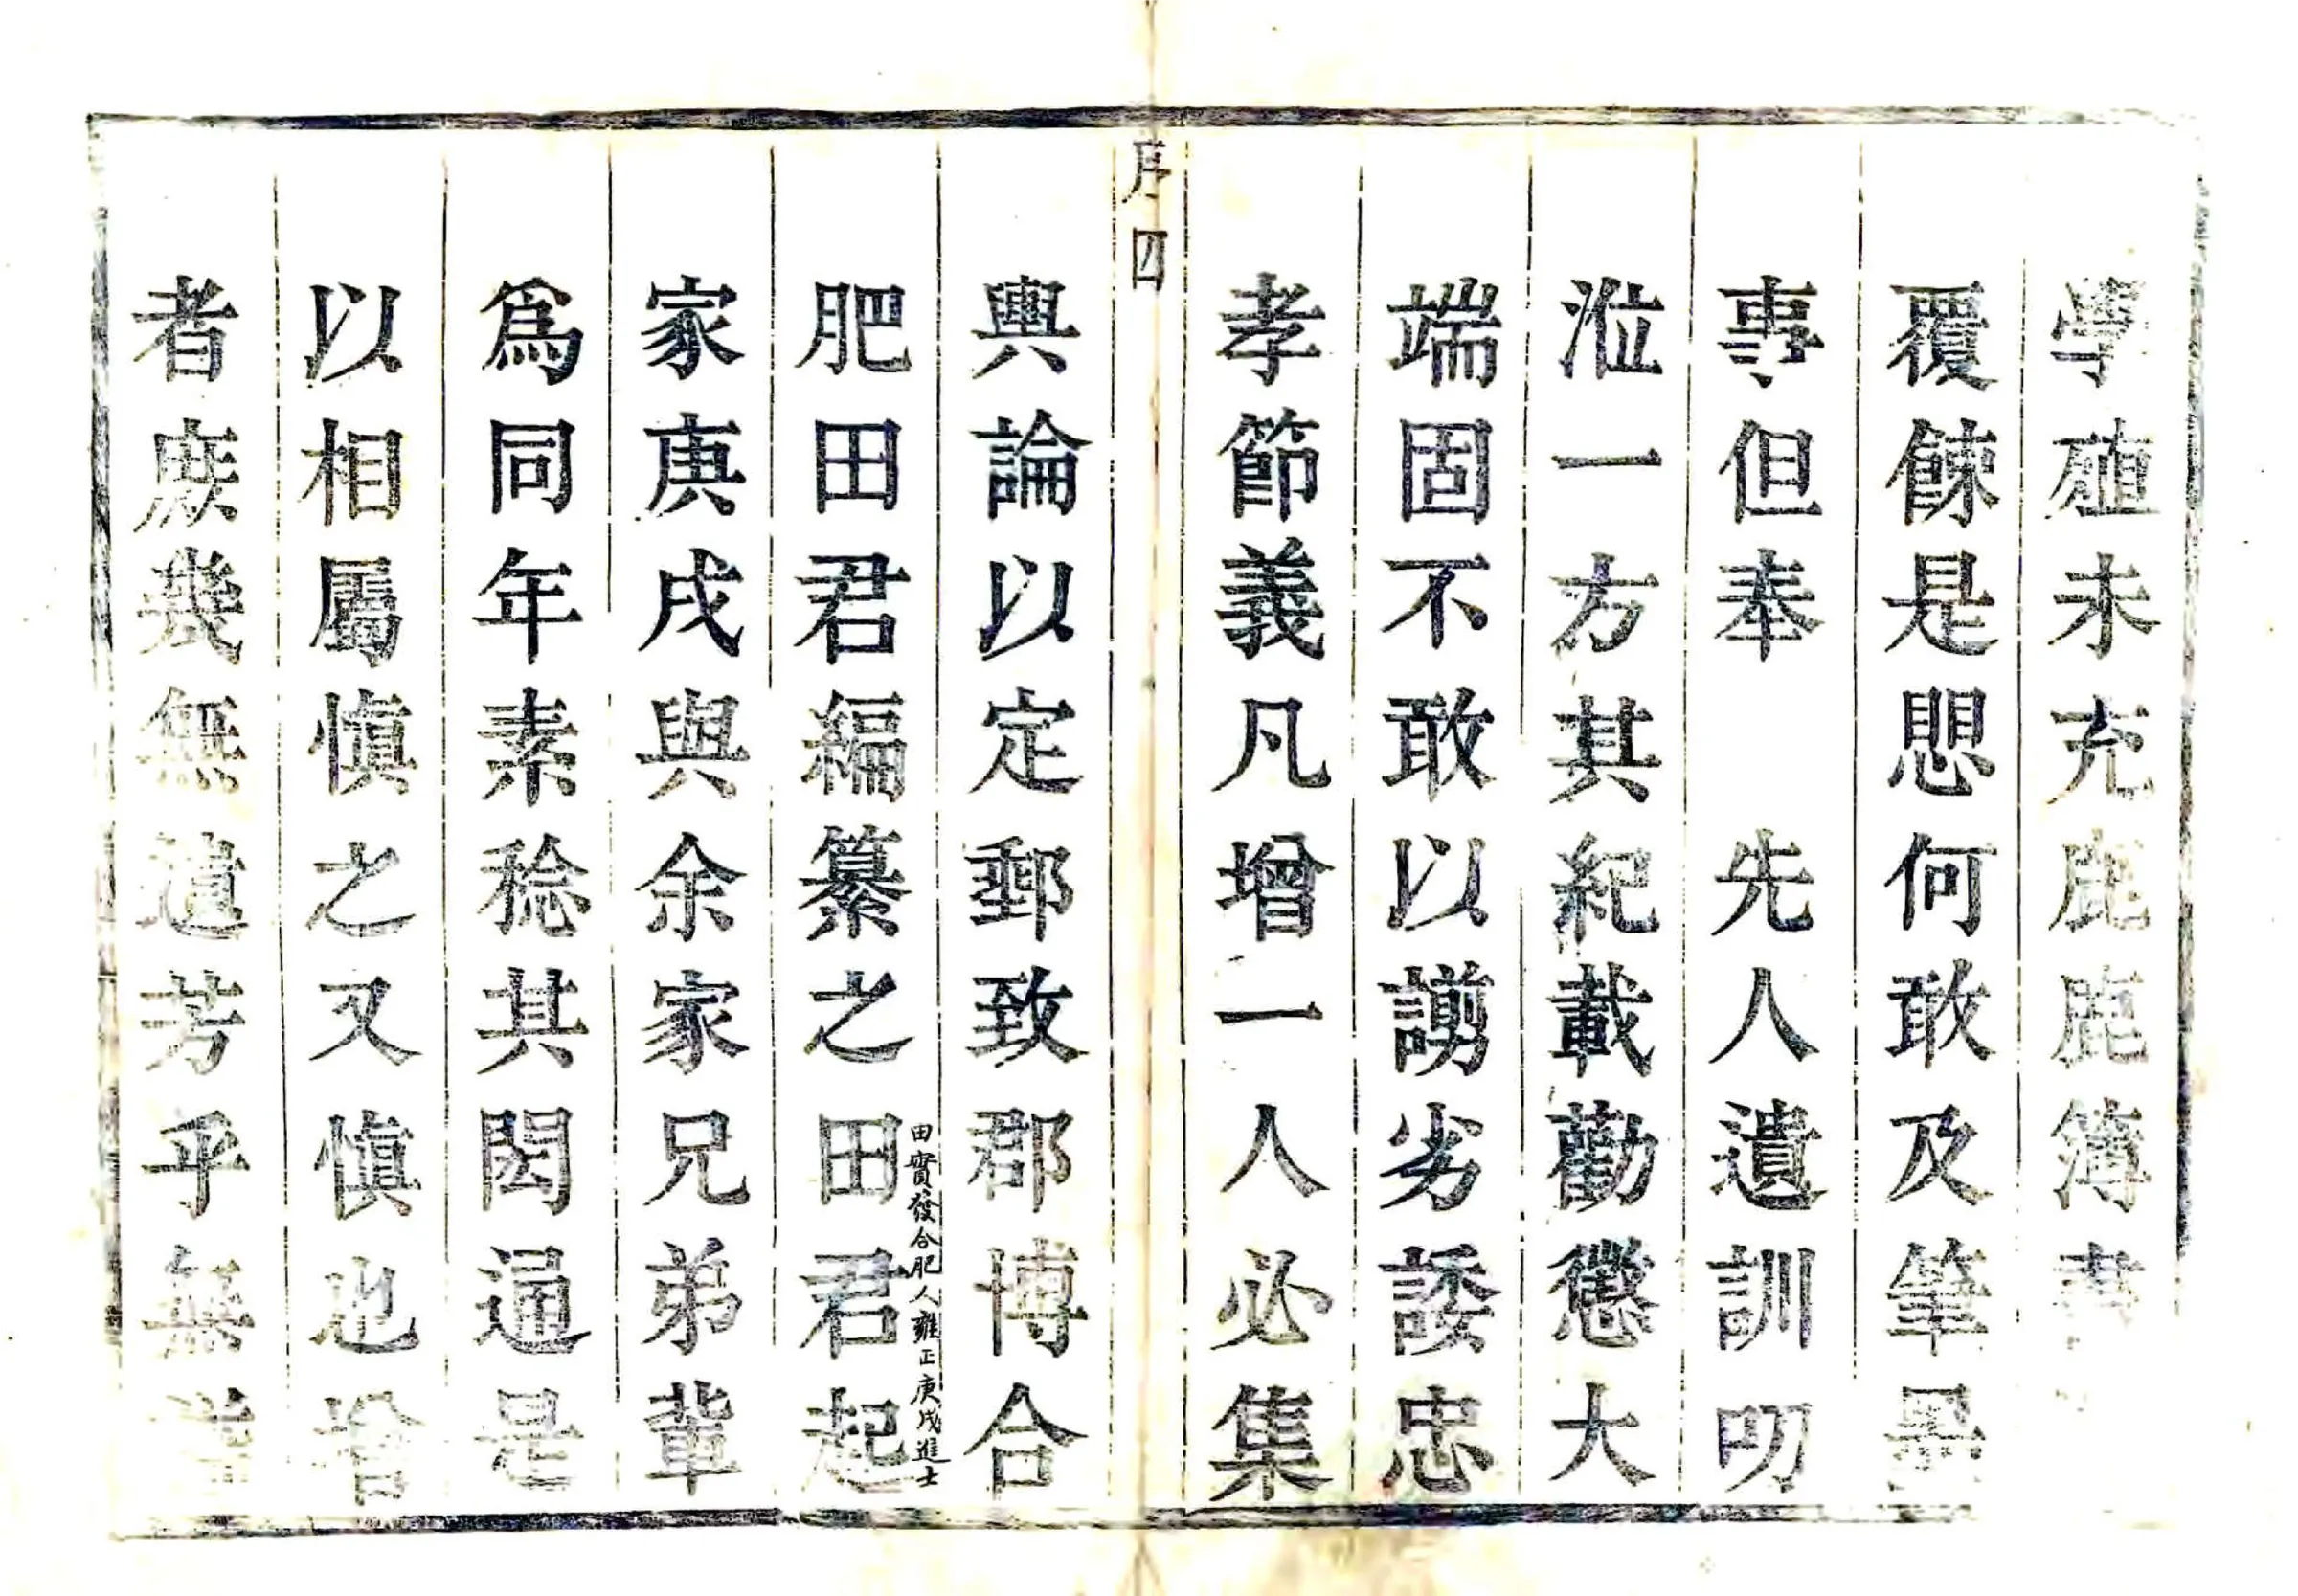 學殖未充鹿鹿簿書
覆餗是懼何敢及筆墨
事但奉　先人遺訓叨
涖一方其紀載勸懲大
端固不敢以譾劣諉忠
孝節義凡增一人必集
序四
輿論以定郵致郡博合
肥田君編纂之田君起
田實發合肥人雍正庚戌進士
家庚戌與余家兄弟輩
為同年素稔其閎通是
以相屬慎之又慎也增
者庶幾無遺芳乎無